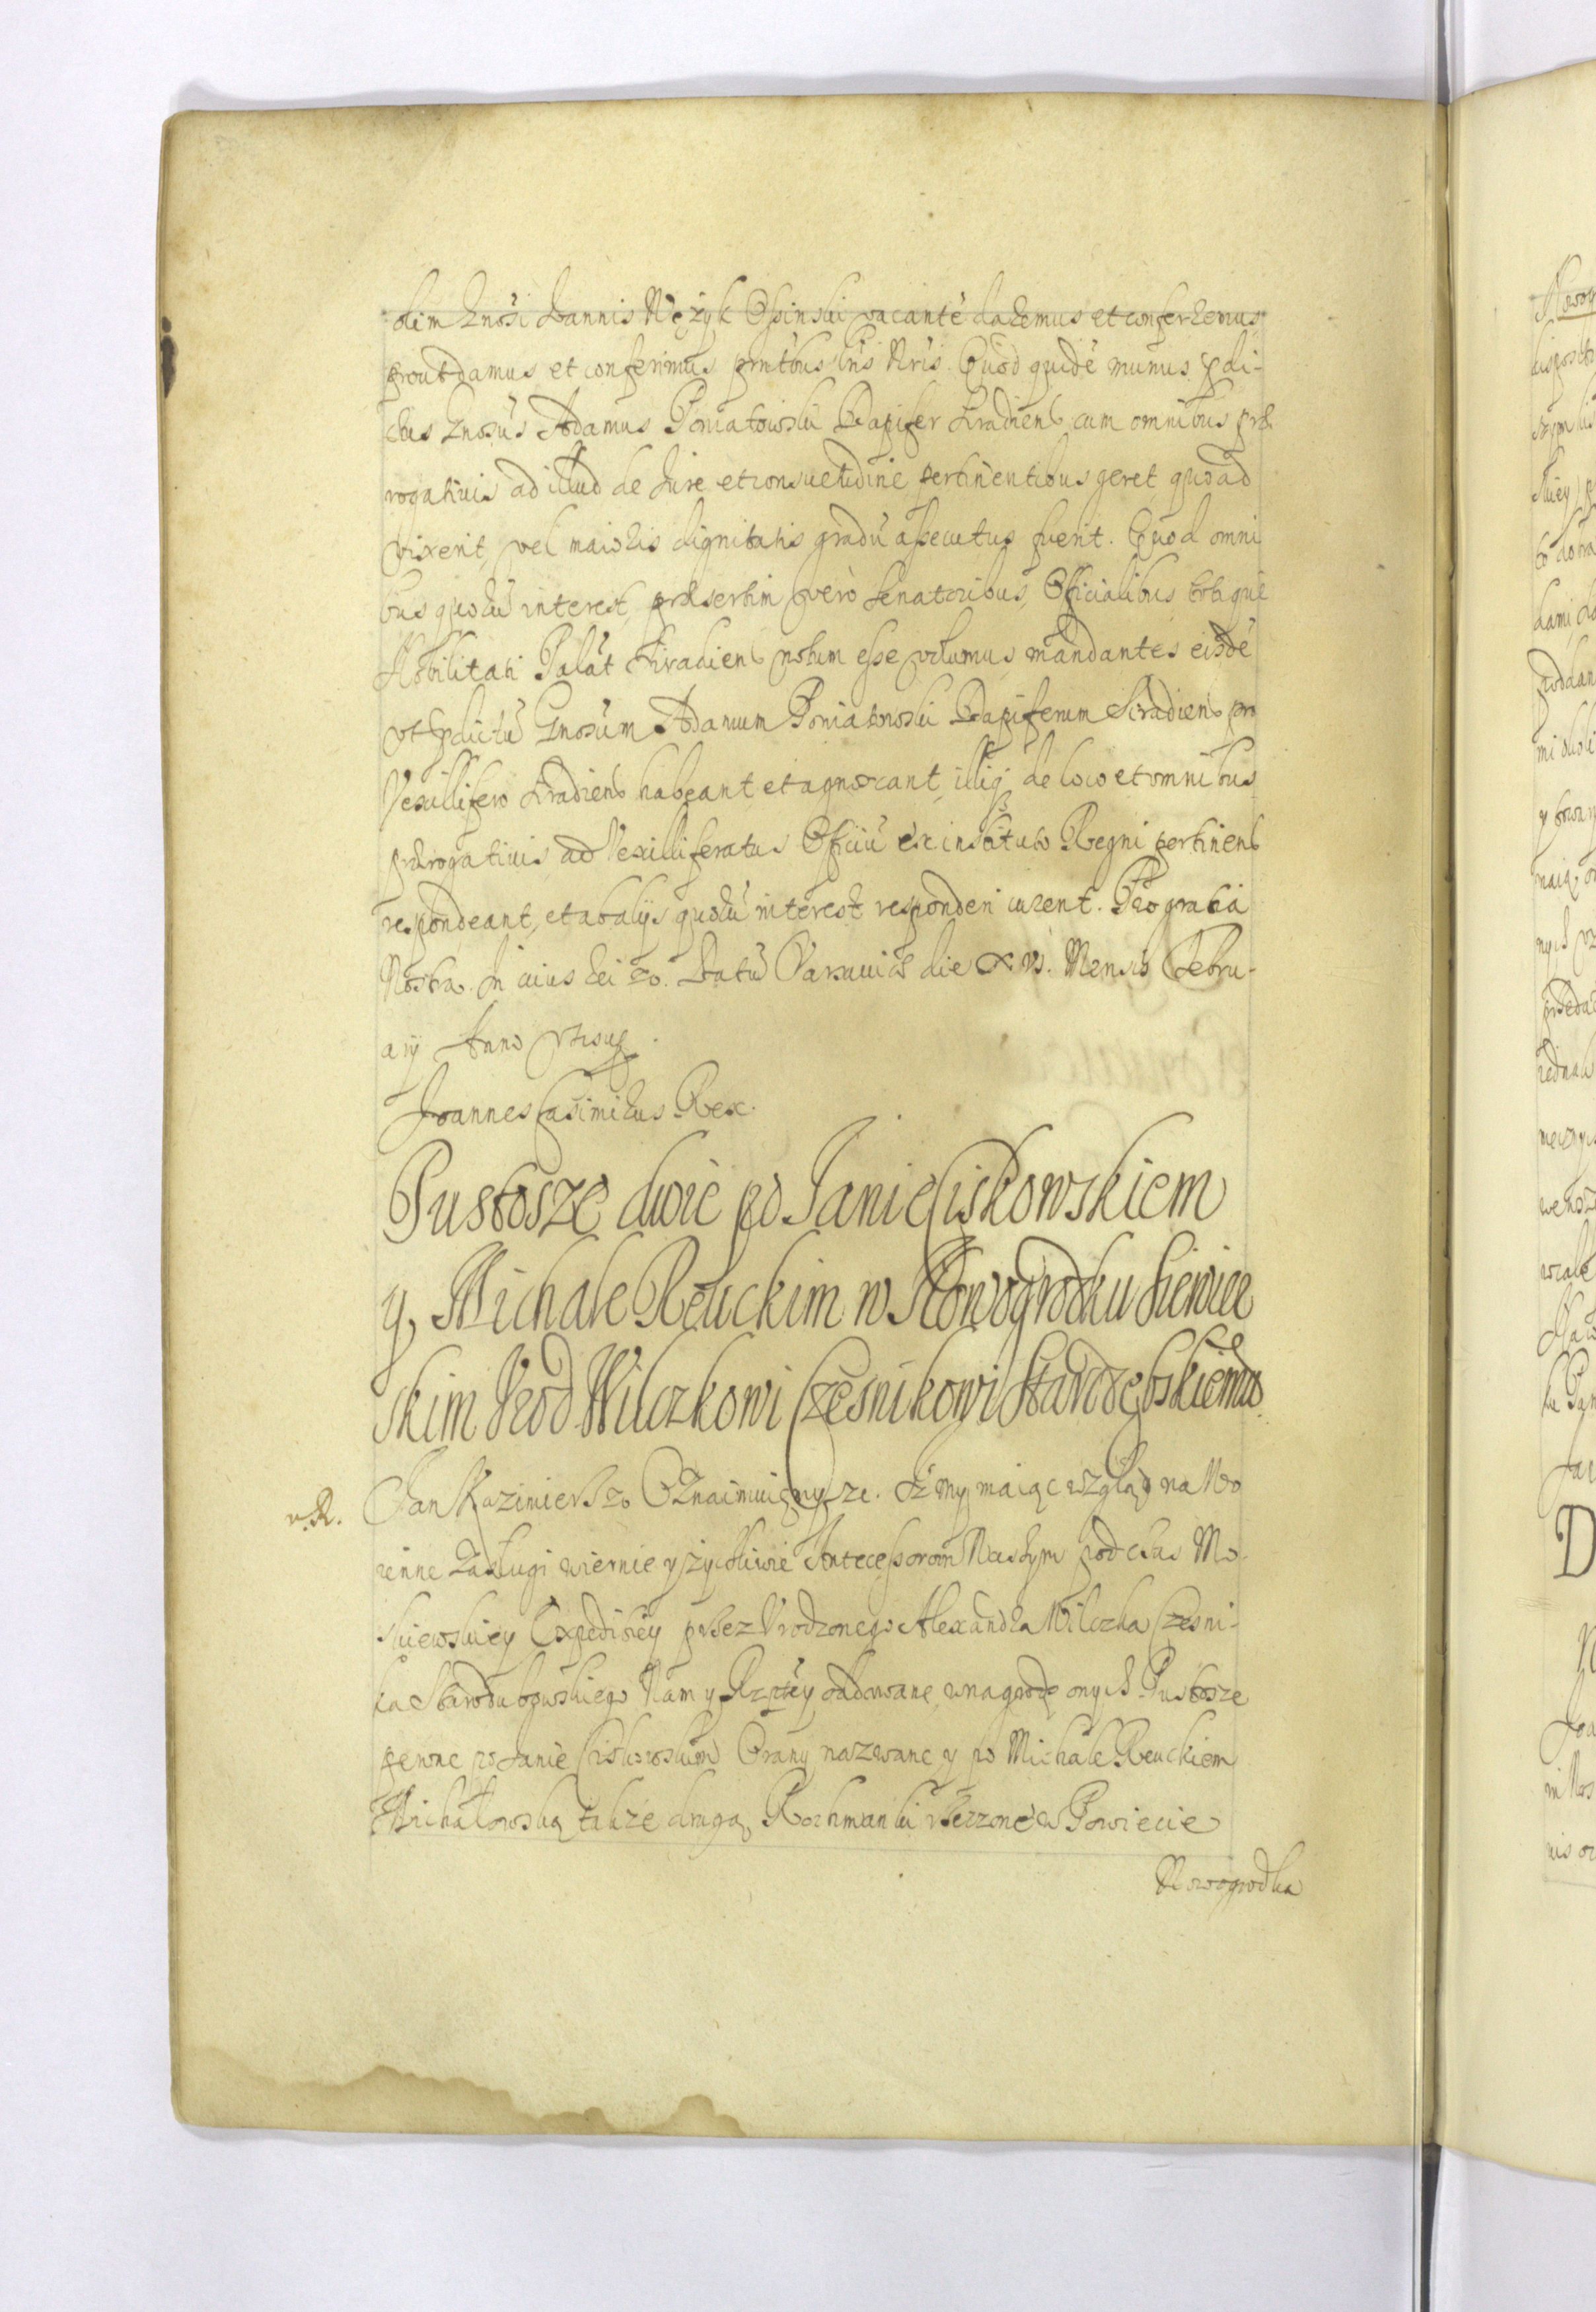 olim Gnosi Joannis Nieżyk Ossinski vacantè daremus et conferremus
prout damus et conferimus prntibus Lris Nris. Quod quidē munus pdi-
ctus Gnosus Adamus Poniatowski Dapifer Siradiens cum omnibus præ
rogativis ad illud de Jure et consuetudine pertinentibus geret, quoad
vixerit, vel maioris dignitatis gradū assecutus fuerit. Quod omni
bus quorū interest, præsertim verò Senatoribus, Officialibus totiquè
Nobilitati Palāt Siradiens notum esse volumus, mandantes eisdē
vt Spdictū Gnosum Adamum Poniatowski Dapiferum Siradiens pro
Vexillifero Siradiens habeant et agnoscant, illiq; de loco et omnibus
prærogativis, ad Vexilliferatus Officiū ex instituto Regni pertinens
respondeant, et ab alijs quorū interest responderi curent. Pro gratia
Nostra. In cuius rei &. Datū Varsaviæ die XVI. Mensis Febru-
arij Anno vt sup.
Joannes Casimirus Rex.
Pustosze dwie po Janie Ciskowskiem
y, Michale Reuckim w Nowogrodku Siewier
skim Vrod Wilczkowi Czesnikowi Starodębskiemu
v.R. Jan Kazimierz &. Oznaimuiemy &. Iż my maiąc wzgląd na Wo
ienne Zasługi wiernie y życzliwie Antecessorom Naszym pod czas Mo-
skiewskiey Expediciey przez Vrodzonego Alexandra Wilczka Czesni-
ka Starodubowskiego Nam y Rzptey oddawane, w nagrodę onych Pustosze
pewne po Janie Ciskowskim Orany nazwane y po Michale Reuckiem
Michałowską także drugą Rochmanki rzeczone w Powiecie
Nowogrodka